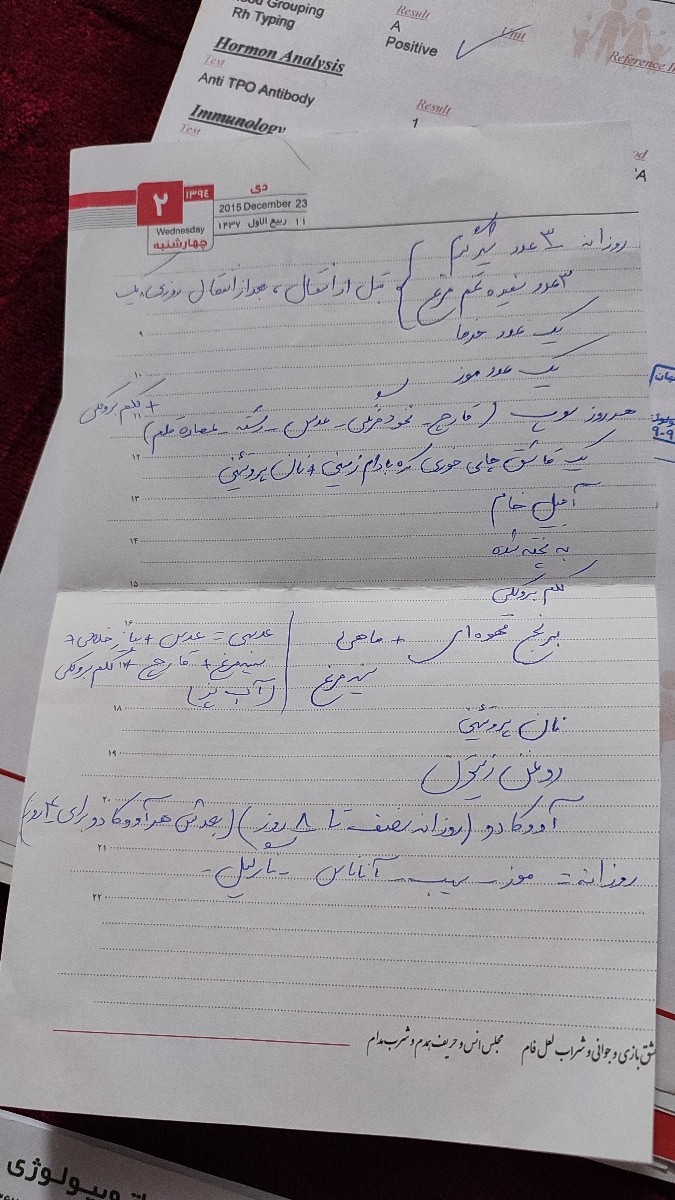 Grouping
Rh Typing
Result
A
Positive
Unit
Reference
Hormon Analysis
Test
Anti TPO Antibody
Result
1
Immunology
Test
۲
۱۳۹٤
دی
2015 December 23
۱۱ ربیع الاول ۱۴۳۷
Wednesday
چهارشنبه
روزانه ۳ عدد
۳ عدد سفیده تخم مرغ
قبل از انتقال، بعد از انتقال روزی یک
۹
یک عدد خرما
۱۰
یک عدد موز
+ کلم بروکلی
۱۱
هر روز سوپ (قارچ - نخود فرنگی - عدس - رشته - عصاره قلم)
۱۲
یک قاشق چای خوری کره بادام زمینی + نان پروتئینی
۱۳
آجیل خام
۱۴
به پخته شده
۱۵
کلم بروکلی
۱۶
برنج قهوه‌ای + ماهی
سینه مرغ
عدسی = عدس + پیاز
سینه مرغ + قارچ + کلم بروکلی
۱۷
(آب پز)
۱۸
نان پروتئینی
۱۹
روغن زیتون
۲۰
آووکادو (روزانه نصف تا ۸ روز) (بعدش هر آووکادو برای ۴ روز)
۲۱
روزانه = موز - سیب - آناناس - نارگیل -
۲۲
عشق بازی و جوانی و شراب لعل فام مجلس انس و حریف همدم و شرب مدام